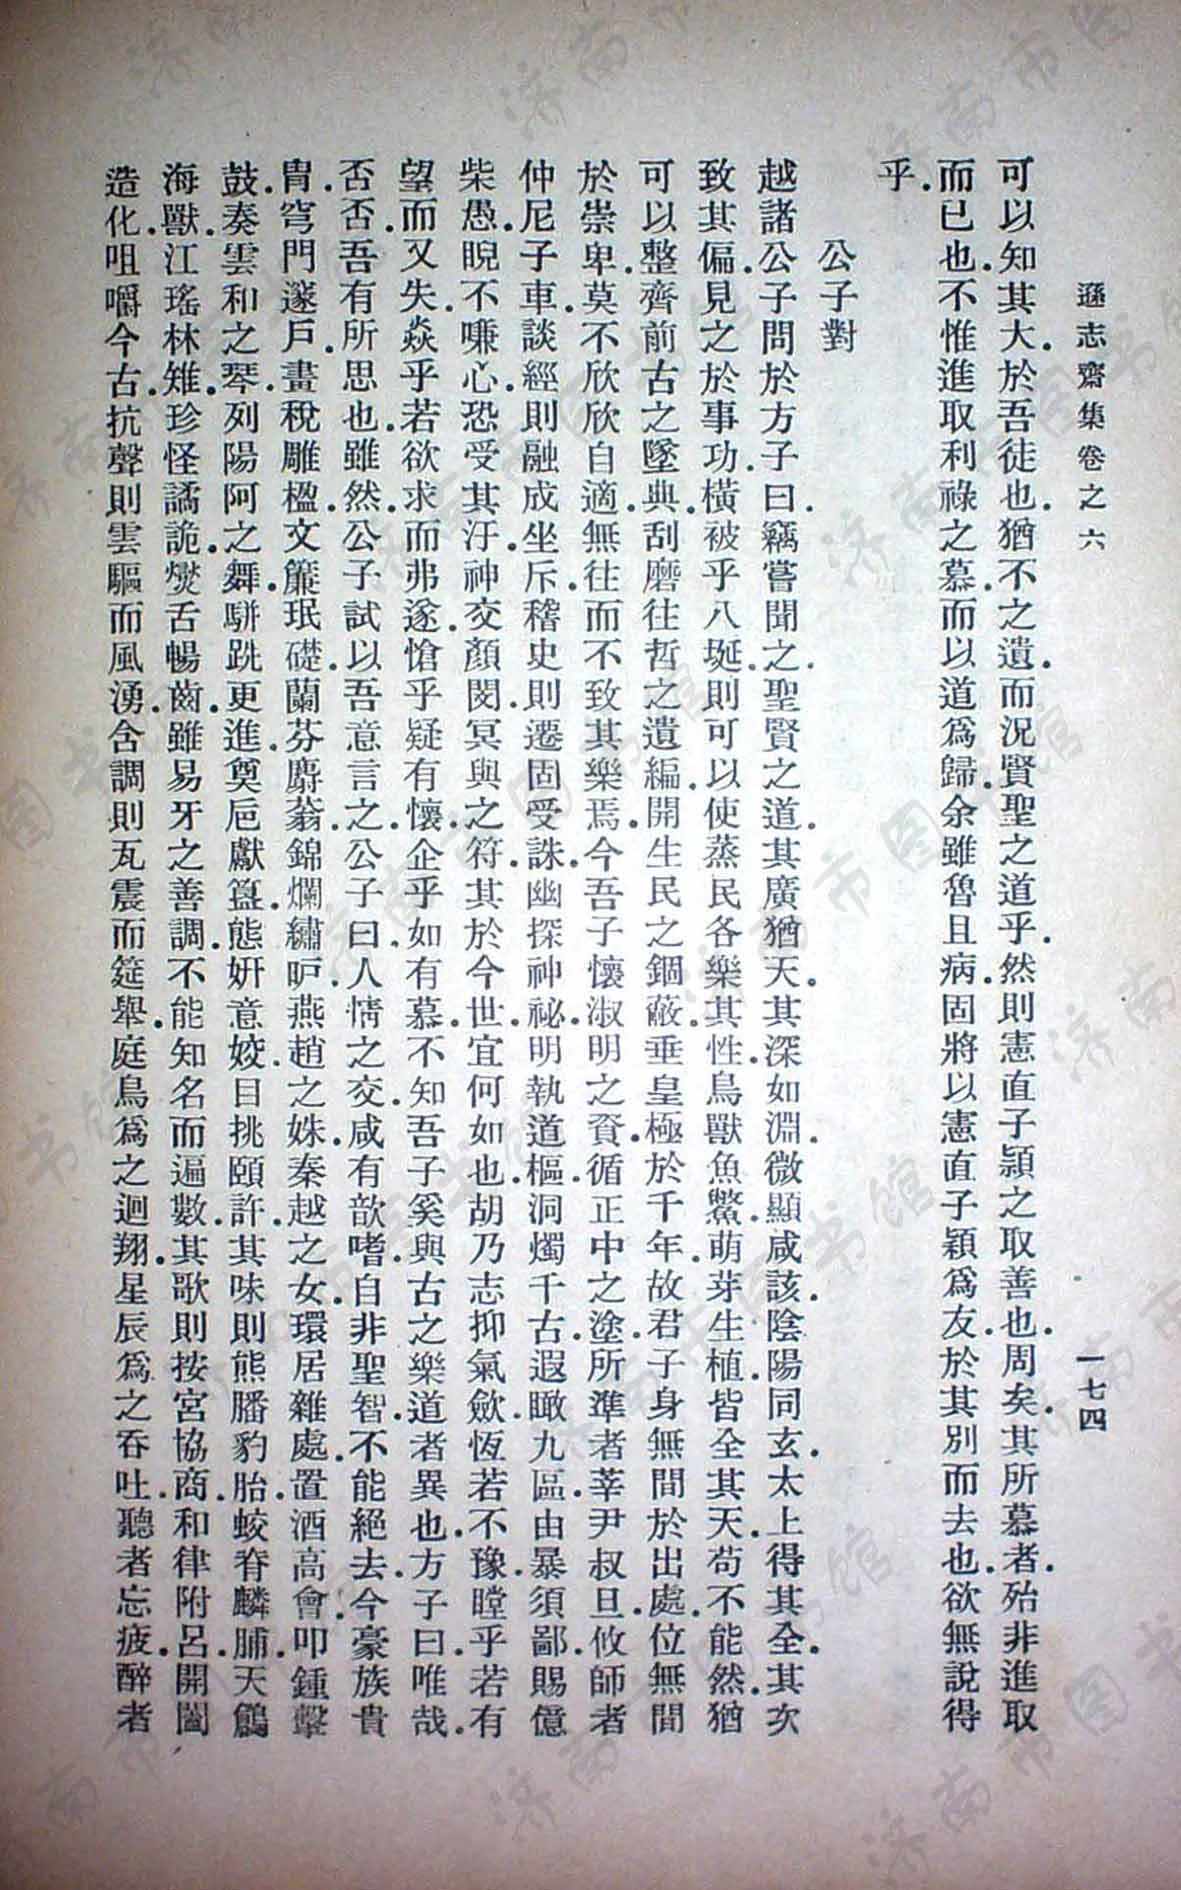 遜志齋集卷之六 一七四
可以知其大於吾徒也猶不之遺而況賢聖之道乎然則憲直子穎之取善也周矣其所慕者殆非進取
而已也不惟進取利祿之慕而以道爲歸余雖魯且病固將以憲直子穎爲友於其別而去也欲無說得
乎
公子對
越諸公子問於方子曰竊嘗聞之聖賢之道其廣猶天其深如淵微顯咸該陰陽同玄太上得其全其次
致其偏見之於事功橫被乎八埏則可以使蒸民各樂其性鳥獸魚鱉萌芽生植皆全其天苟不能然猶
可以整齊前古之墜典刮磨往哲之遺編開生民之錮蔽垂皇極於千年故君子身無間於出處位無間
於崇卑莫不欣欣自適無往而不致其樂焉今吾子懷淑明之資循正中之塗所準者莘尹叔旦攸師者
仲尼子車談經則融成坐斥稽史則遷固受誅幽探神祕明執道樞洞燭千古遐瞰九區由暴須鄙賜億
柴愚睨不嗛心恐受其汙神交顏閔冥與之符其於今世宜何如也胡乃志抑氣歛恆若不豫瞠乎若有
望而又失焱乎若欲求而弗遂愴乎疑有懷企乎如有慕不知吾子奚與古之樂道者異也方子曰唯哉
否否吾有所思也雖然公子試以吾意言之公子曰人情之交咸有歆嗜自非聖智不能絕去今豪族貴
胄穹門邃戶畫梲雕楹文簾珉礎蘭芬麝蓊錦爛繡昈燕趙之姝秦越之女環居雜處置酒高會叩鍾擊
鼓奏雲和之琴列陽阿之舞駢跣更進奠巵獻簋態妍意姣目挑頤許其味則熊膰豹胎蛟脊麟脯天鷞
海獸江瑤林雉珍怪譎詭爕舌暢齒雖易牙之善調不能知名而遍數其歌則按宮協商和律附呂開闔
造化咀嚼今古抗聲則雲驅而風湧含調則瓦震而筵舉庭鳥爲之迴翔星辰爲之吞吐聽者忘疲醉者